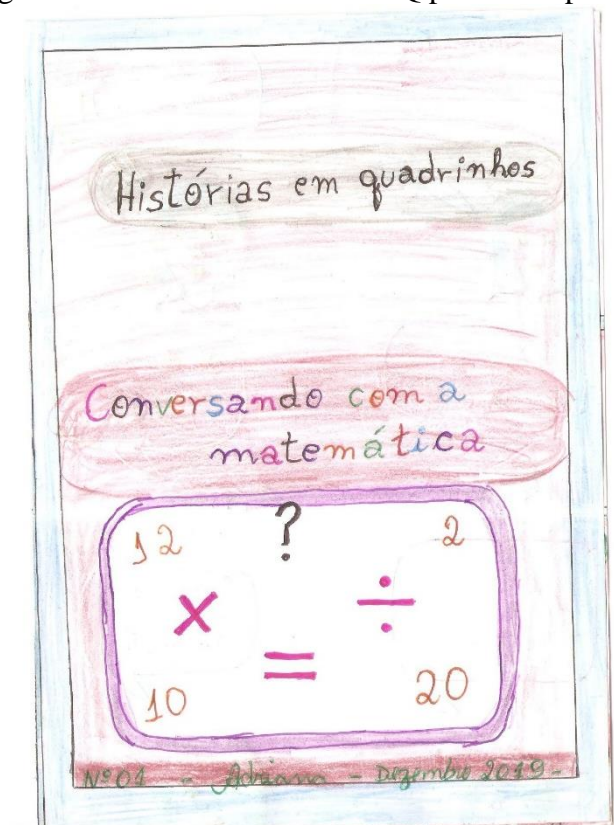 Histórias em quadrinhos
Conversando com a
matemática
12 ? 2
× ÷
=
10 20
Nº 01 - Adriana - Dezembro 2019 -